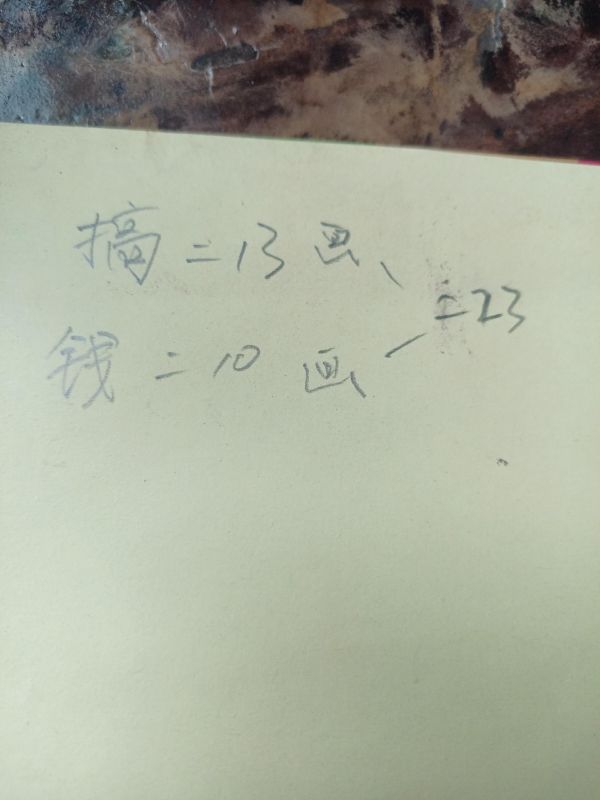 搞=13画
=23
钱=10画